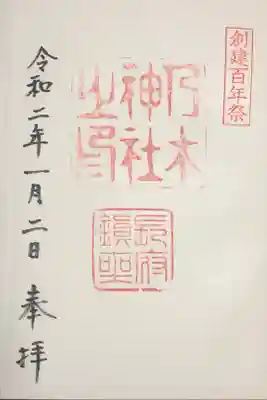 創建百年祭
乃木
神社
之印
長府
鎮座
令和二年一月二日 奉拝